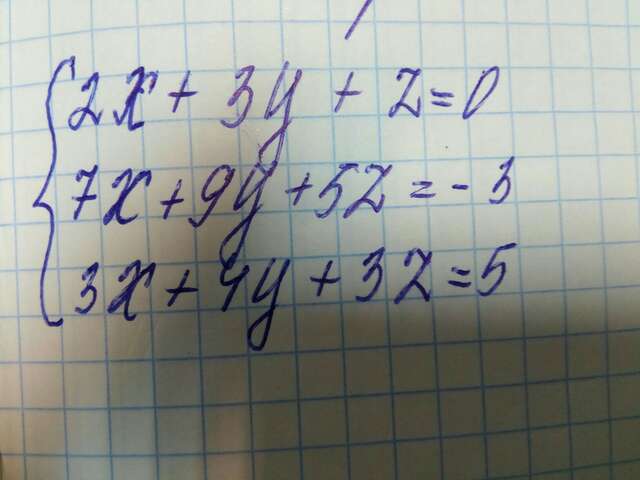 2x + 3y + z = 0
7x + 9y + 5z = -3
3x + 4y + 3z = 5